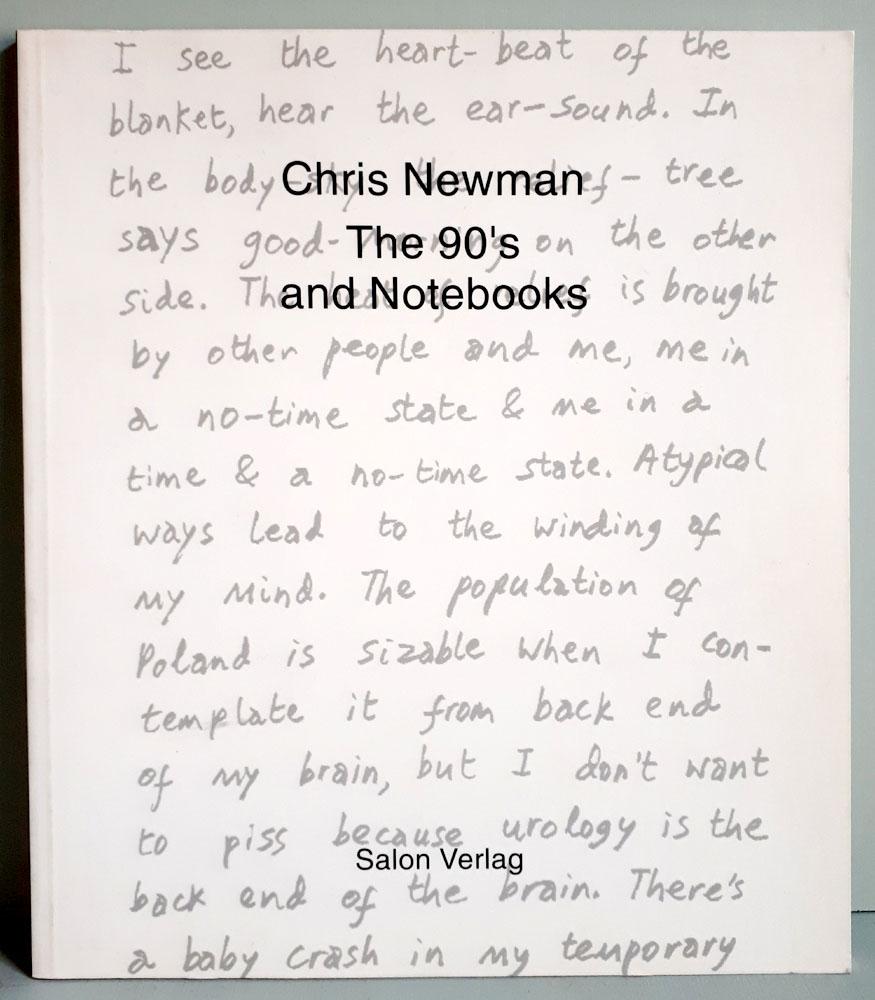 I see the heart-beat of the
blanket, hear the ear-sound. In
the body-sky the relief-tree
Chris Newman
says good-morning on the other
The 90's
side. The beat of relief is brought
and Notebooks
by other people and me, me in
a no-time state & me in a
time & a no-time state. Atypical
ways lead to the winding of
my mind. The population of
Poland is sizable when I con-
template it from back end
of my brain, but I don't want
to piss because urology is the
Salon Verlag
back end of the brain. There's
a baby crash in my temporary